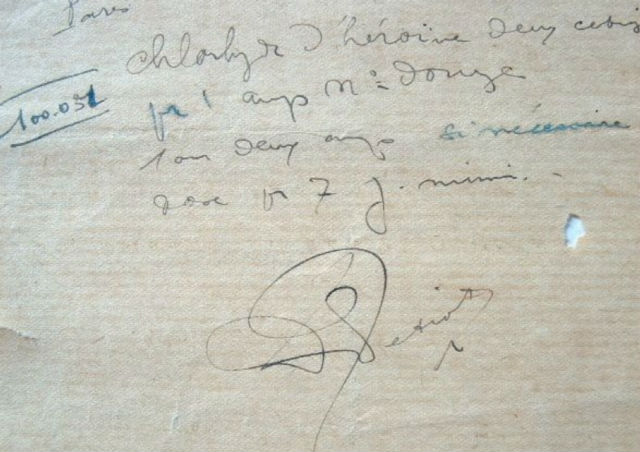 Paris
chlorhyde d'héroïne deux cetig
100.051
pr 1 amp N= Douze
1 ou deux amp si nécessaire
dose pr 7 j. mimi. -
Petiot